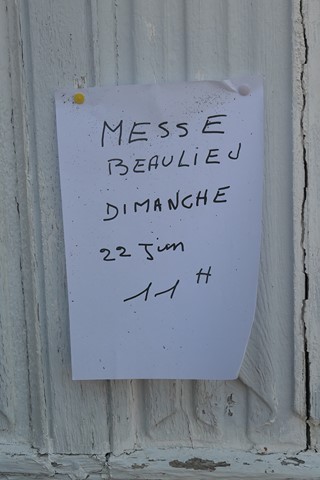 MESSE
BEAULIEU
DIMANCHE
22 Juin
11 H